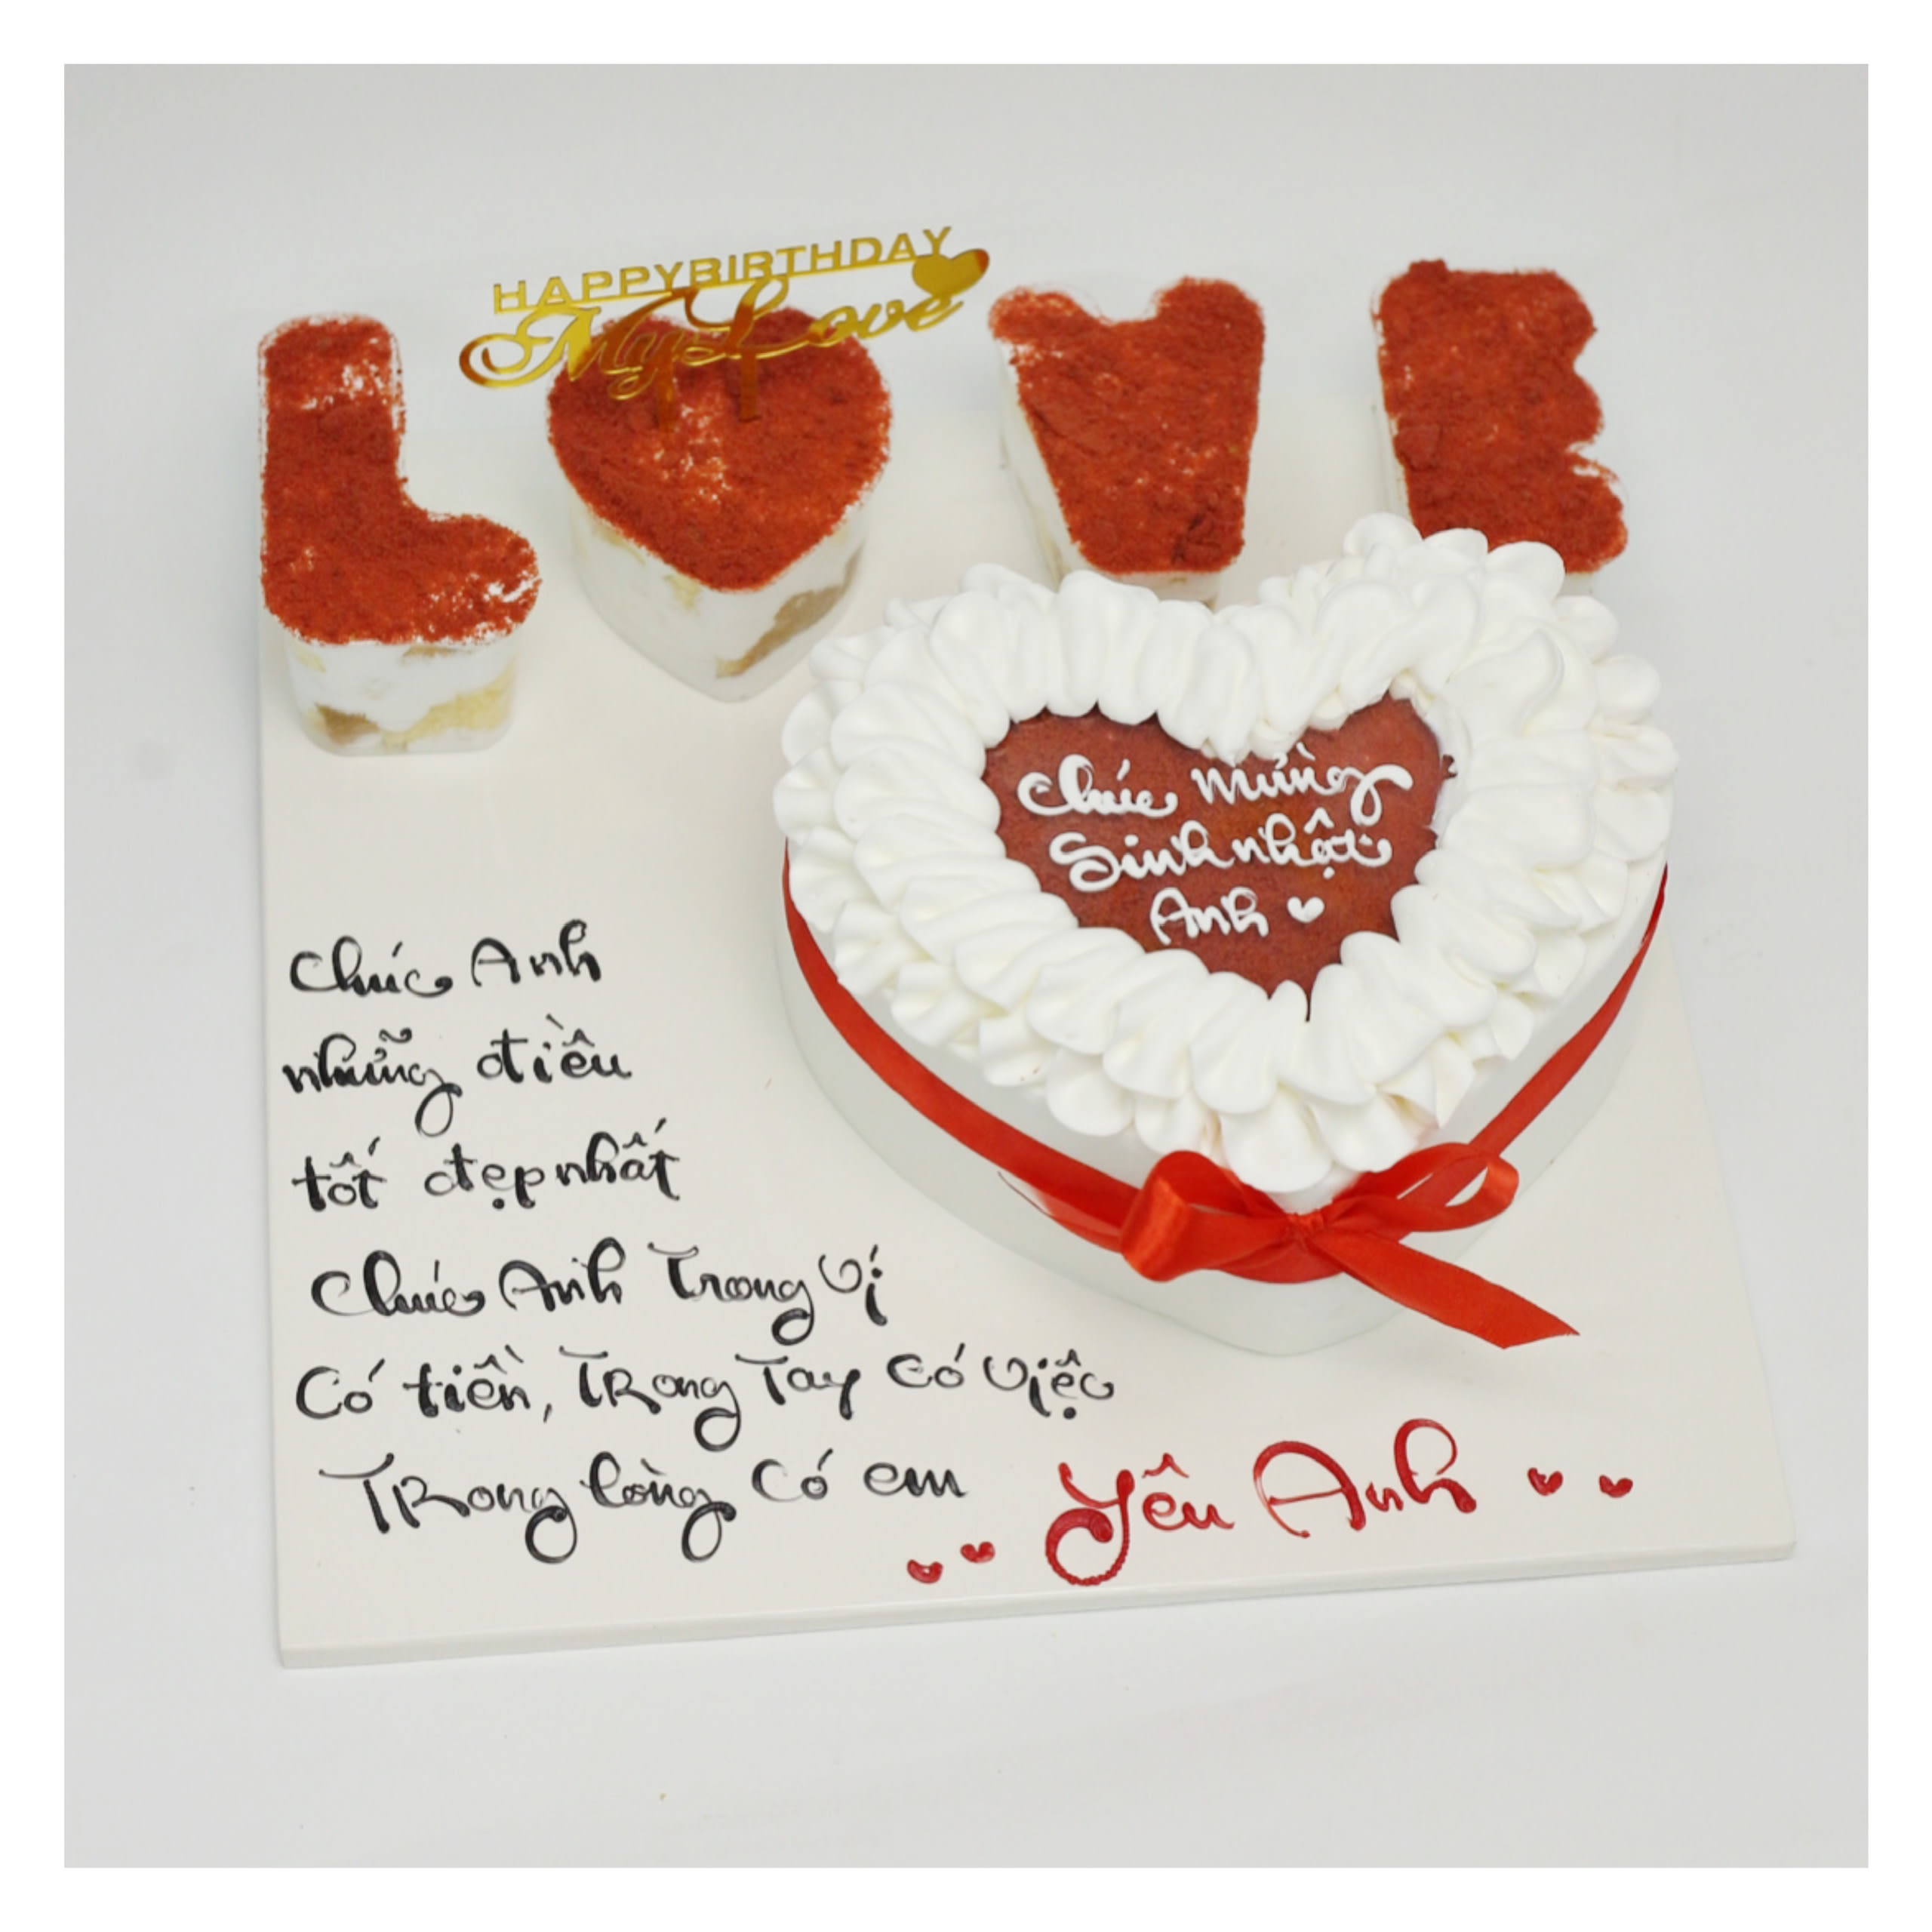 HAPPYBIRTHDAY
My Love
LOVE
Chúc mừng
Sinh nhật
Anh
Chúc Anh
những điều
tốt đẹp nhất
Chúc Anh Trong Ví
Có tiền, Trong Tay Có Việc
Trong lòng Có em
Yêu Anh